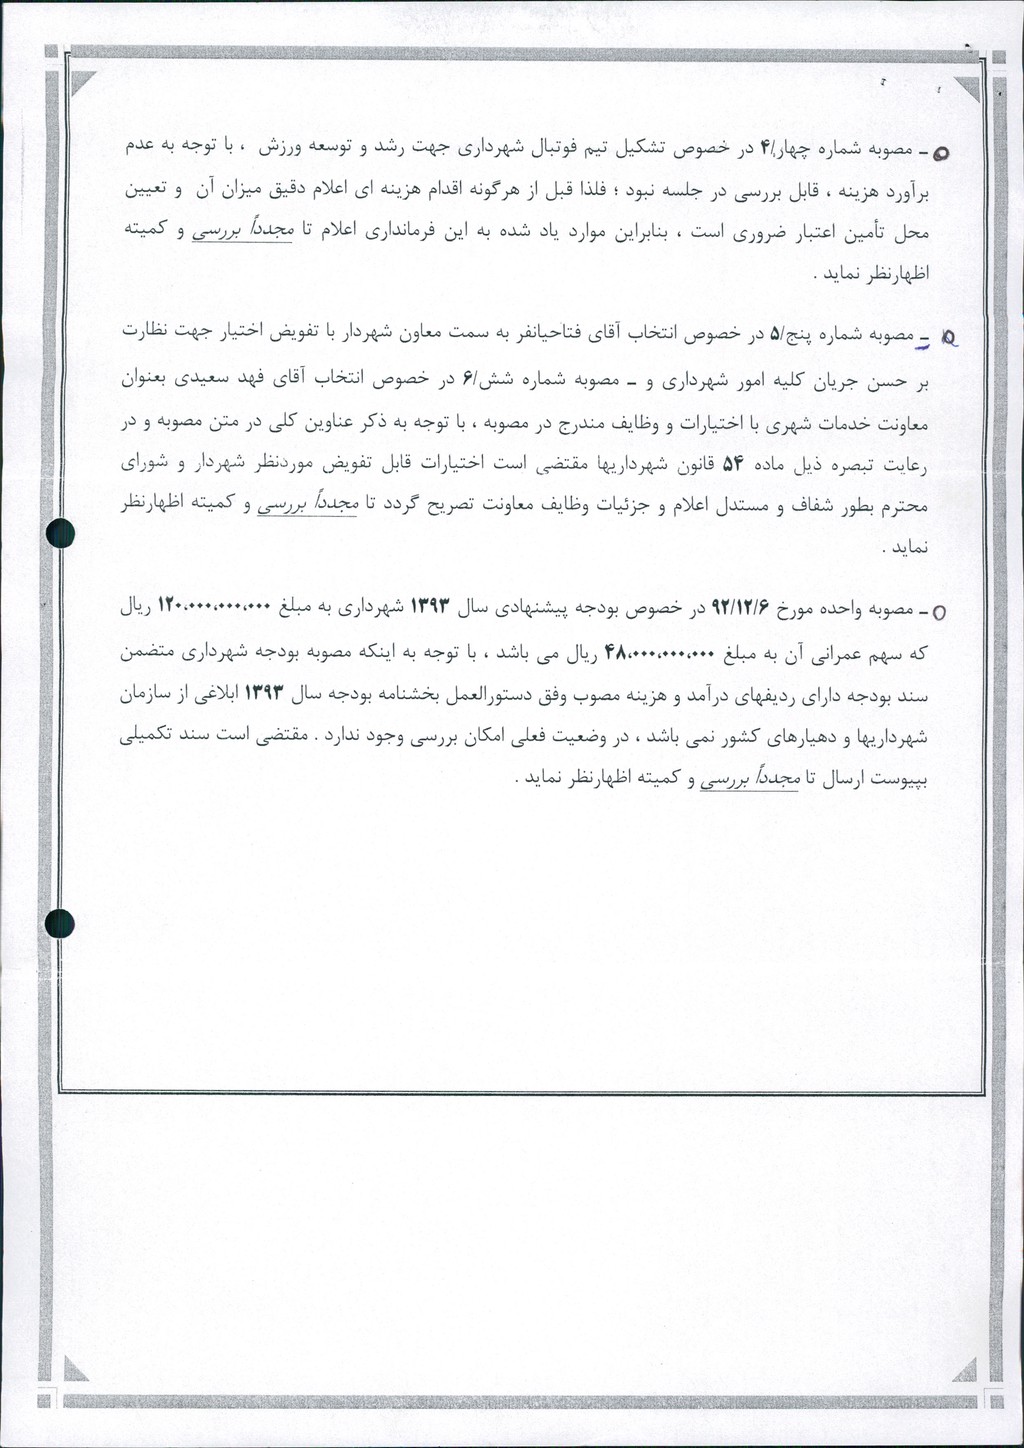 ـ مصوبه شماره چهار/۴ در خصوص تشکیل تیم فوتبال شهرداری جهت رشد و توسعه ورزش ، با توجه به عدم
برآورد هزینه ، قابل بررسی در جلسه نبود ؛ فلذا قبل از هرگونه اقدام هزینه ای اعلام دقیق میزان آن و تعیین
محل تأمین اعتبار ضروری است ، بنابراین موارد یاد شده به این فرمانداری اعلام تا مجدداً بررسی و کمیته
اظهارنظر نماید .
ـ مصوبه شماره پنج/۵ در خصوص انتخاب آقای فتاحیانفر به سمت معاون شهردار با تفویض اختیار جهت نظارت
بر حسن جریان کلیه امور شهرداری و ـ مصوبه شماره شش/۶ در خصوص انتخاب آقای فهد سعیدی بعنوان
معاونت خدمات شهری با اختیارات و وظایف مندرج در مصوبه ، با توجه به ذکر عناوین کلی در متن مصوبه و در
رعایت تبصره ذیل ماده ۵۴ قانون شهرداریها مقتضی است اختیارات قابل تفویض موردنظر شهردار و شورای
محترم بطور شفاف و مستدل اعلام و جزئیات وظایف معاونت تصریح گردد تا مجدداً بررسی و کمیته اظهارنظر
نماید .
ـ مصوبه واحده مورخ ۹۲/۱۲/۶ در خصوص بودجه پیشنهادی سال ۱۳۹۳ شهرداری به مبلغ ۱۲۰،۰۰۰،۰۰۰،۰۰۰ ریال
که سهم عمرانی آن به مبلغ ۴۸،۰۰۰،۰۰۰،۰۰۰ ریال می باشد ، با توجه به اینکه مصوبه بودجه شهرداری متضمن
سند بودجه دارای ردیفهای درآمد و هزینه مصوب وفق دستورالعمل بخشنامه بودجه سال ۱۳۹۳ ابلاغی از سازمان
شهرداریها و دهیارهای کشور نمی باشد ، در وضعیت فعلی امکان بررسی وجود ندارد . مقتضی است سند تکمیلی
بپیوست ارسال تا مجدداً بررسی و کمیته اظهارنظر نماید .